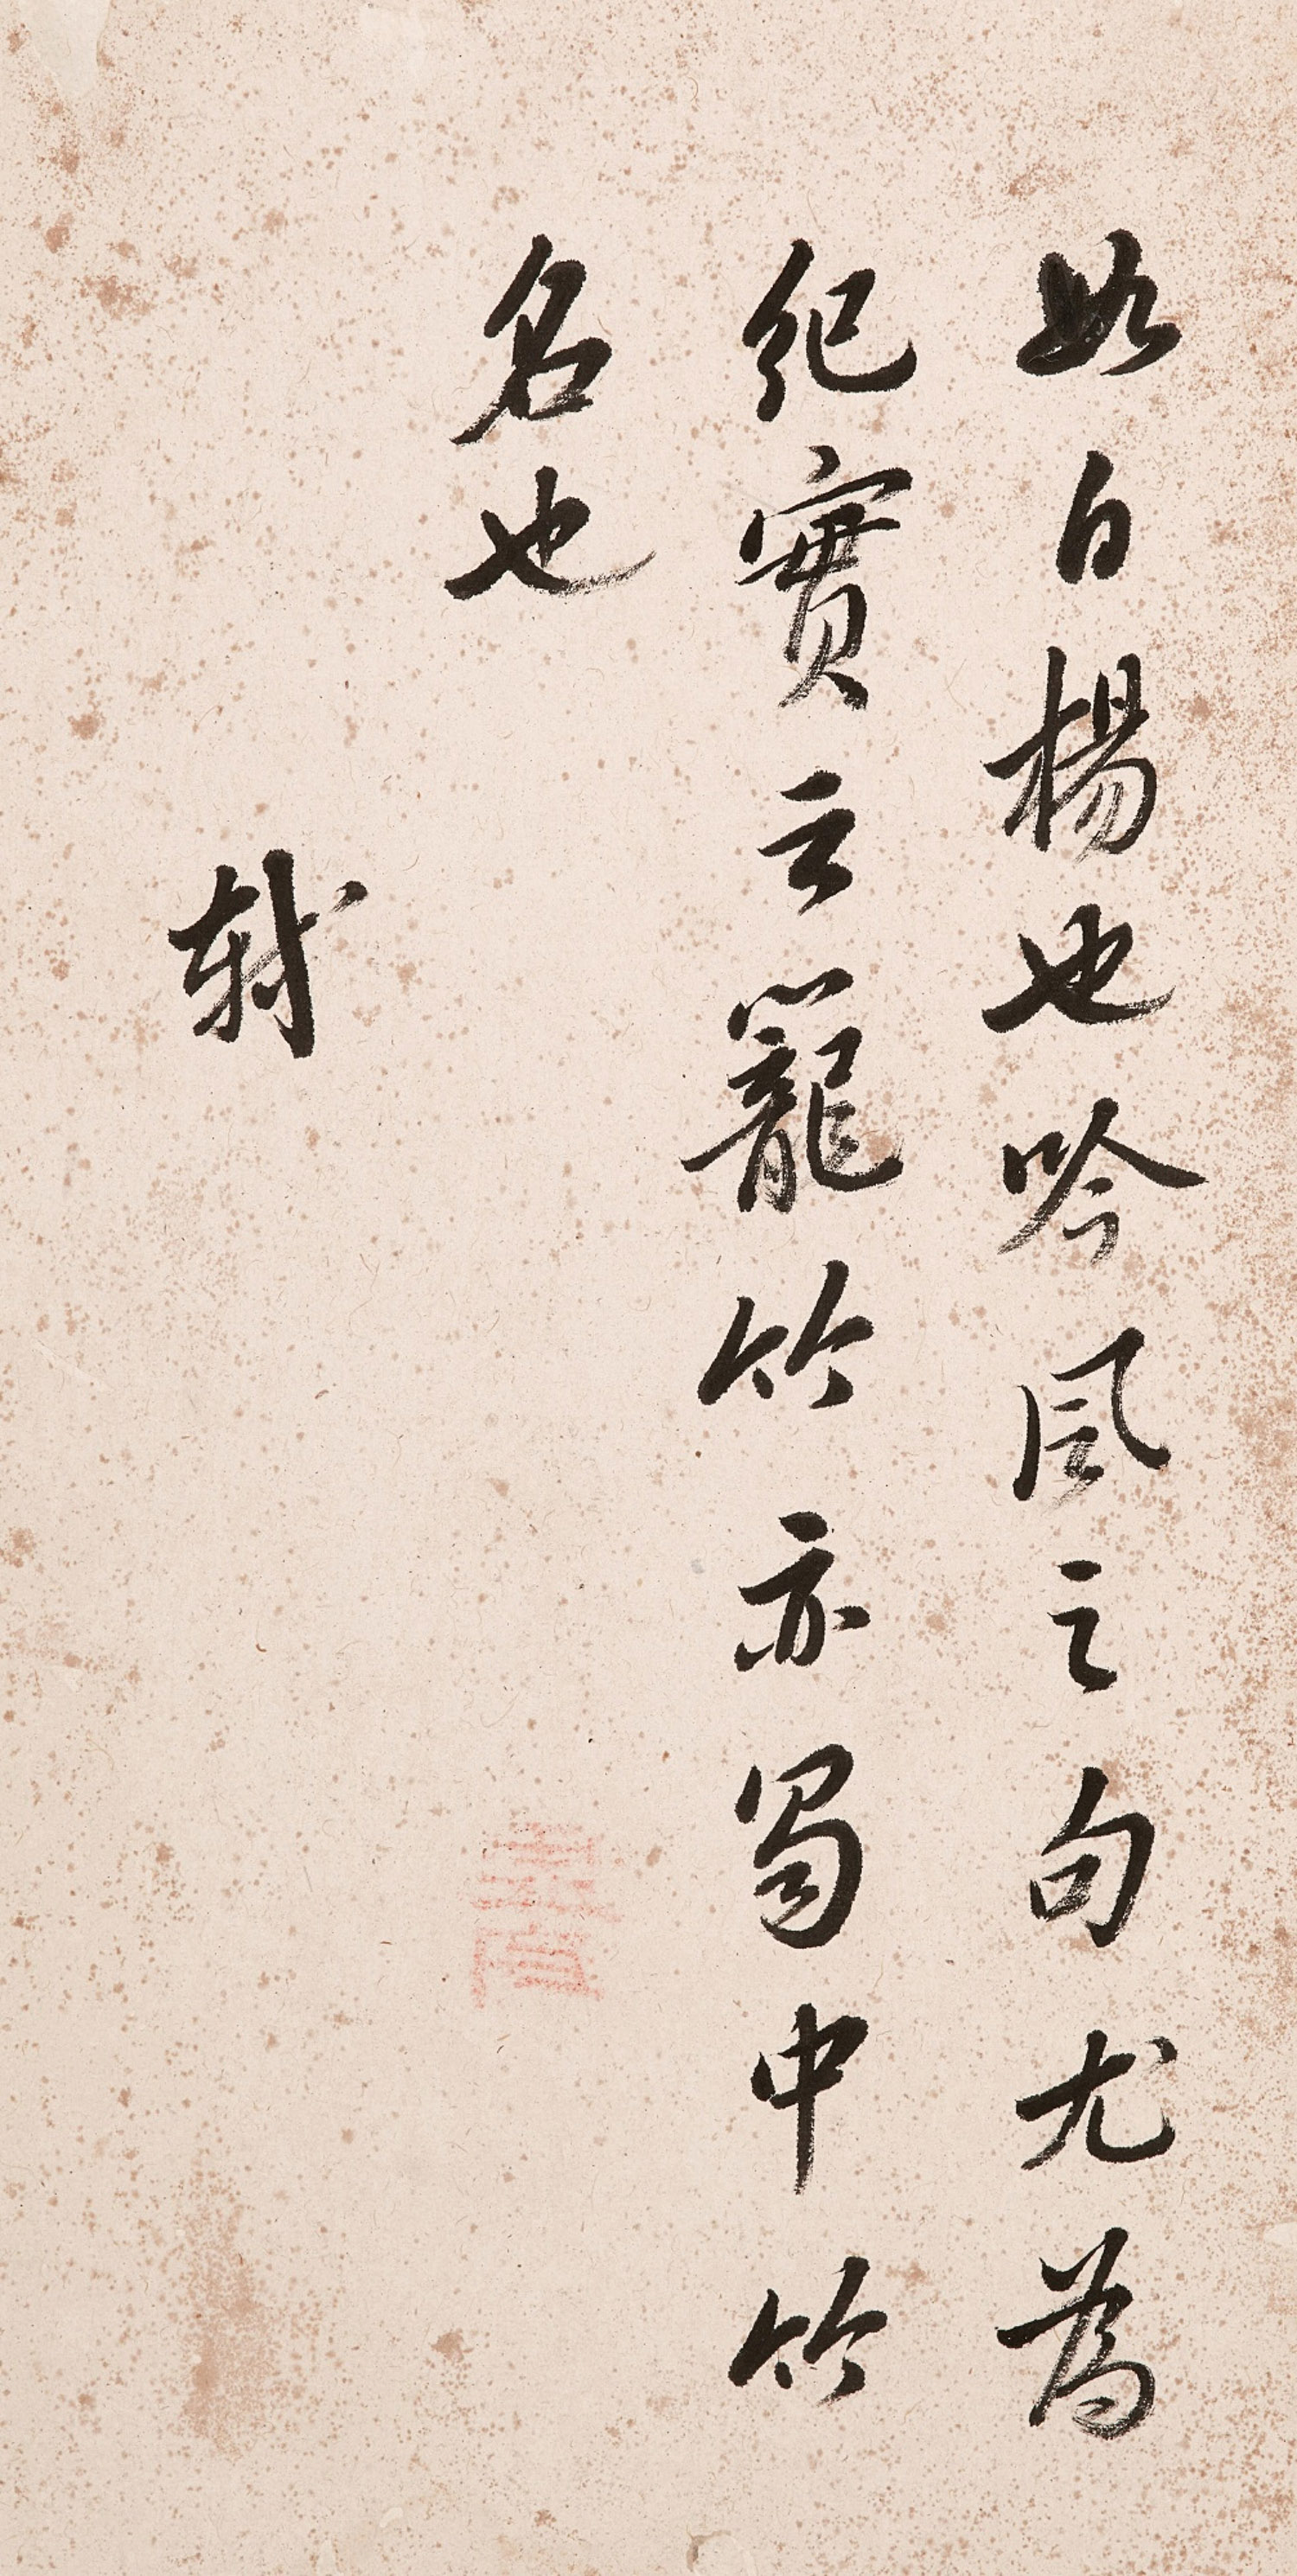 如白楊也吟風之句尤為
紀實云籠竹亦蜀中竹
名也
軾